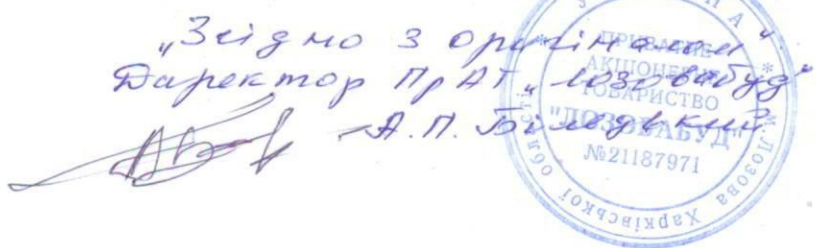 „Згідно з оригіналом"
Директор ПрАТ „Лозовабуд"
А.П.
ПРИВАТНЕ
АКЦІОНЕРНЕ
ТОВАРИСТВО
"ЛОЗОВАБУД"
№21187971
м.Лозова Харківської області